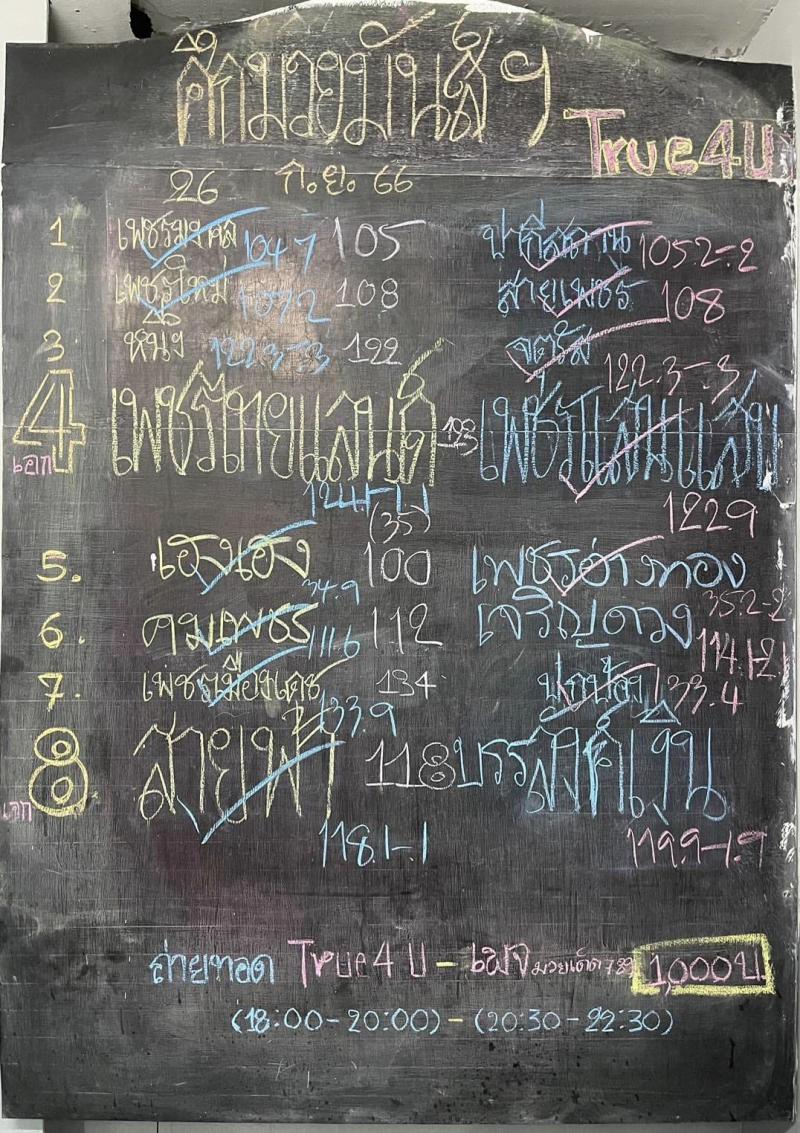 ศึกมวยมันส์ ฯ
True4U
26 ก.ย. 66
1 เพชรมงคล 104.7 105 ปากีสถาน 105.2-.2
2 เพชรใหม่ 107.2 108 สายเพชร 108
3 หนึ่ง 122.3-.3 122 จตุรัส 122.3-.3
4 เอก เพชรไทยแลนด์ 123 เพชรแสนแสบ
124.1-1.1 122.9
5. เฮงเฮง 34.9 (35) 100 เพชรอ่างทอง 35.2-.2
6. คมเพชร 111.6 112 เจริญดวง 114.1-2.1
7. เพชรเมืองเดช 133.9 134 133.4
8 เอก สายฟ้า 118 บรรลังค์เงิน
118.1-.1 119.9-1.9
ถ่ายทอด True4U - เพจ มวยเด็ด789 1,000บ
(18:00-20:00) - (20:30-22:30)